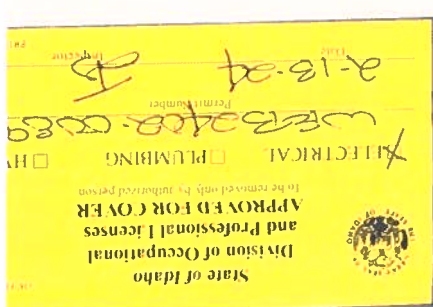 State of Idaho
Division of Occupational
and Professional Licenses
APPROVED FOR COVER
To be removed only by authorized person
ELECTRICAL PLUMBING HV
Permit Number
2-13-24
Date Inspector